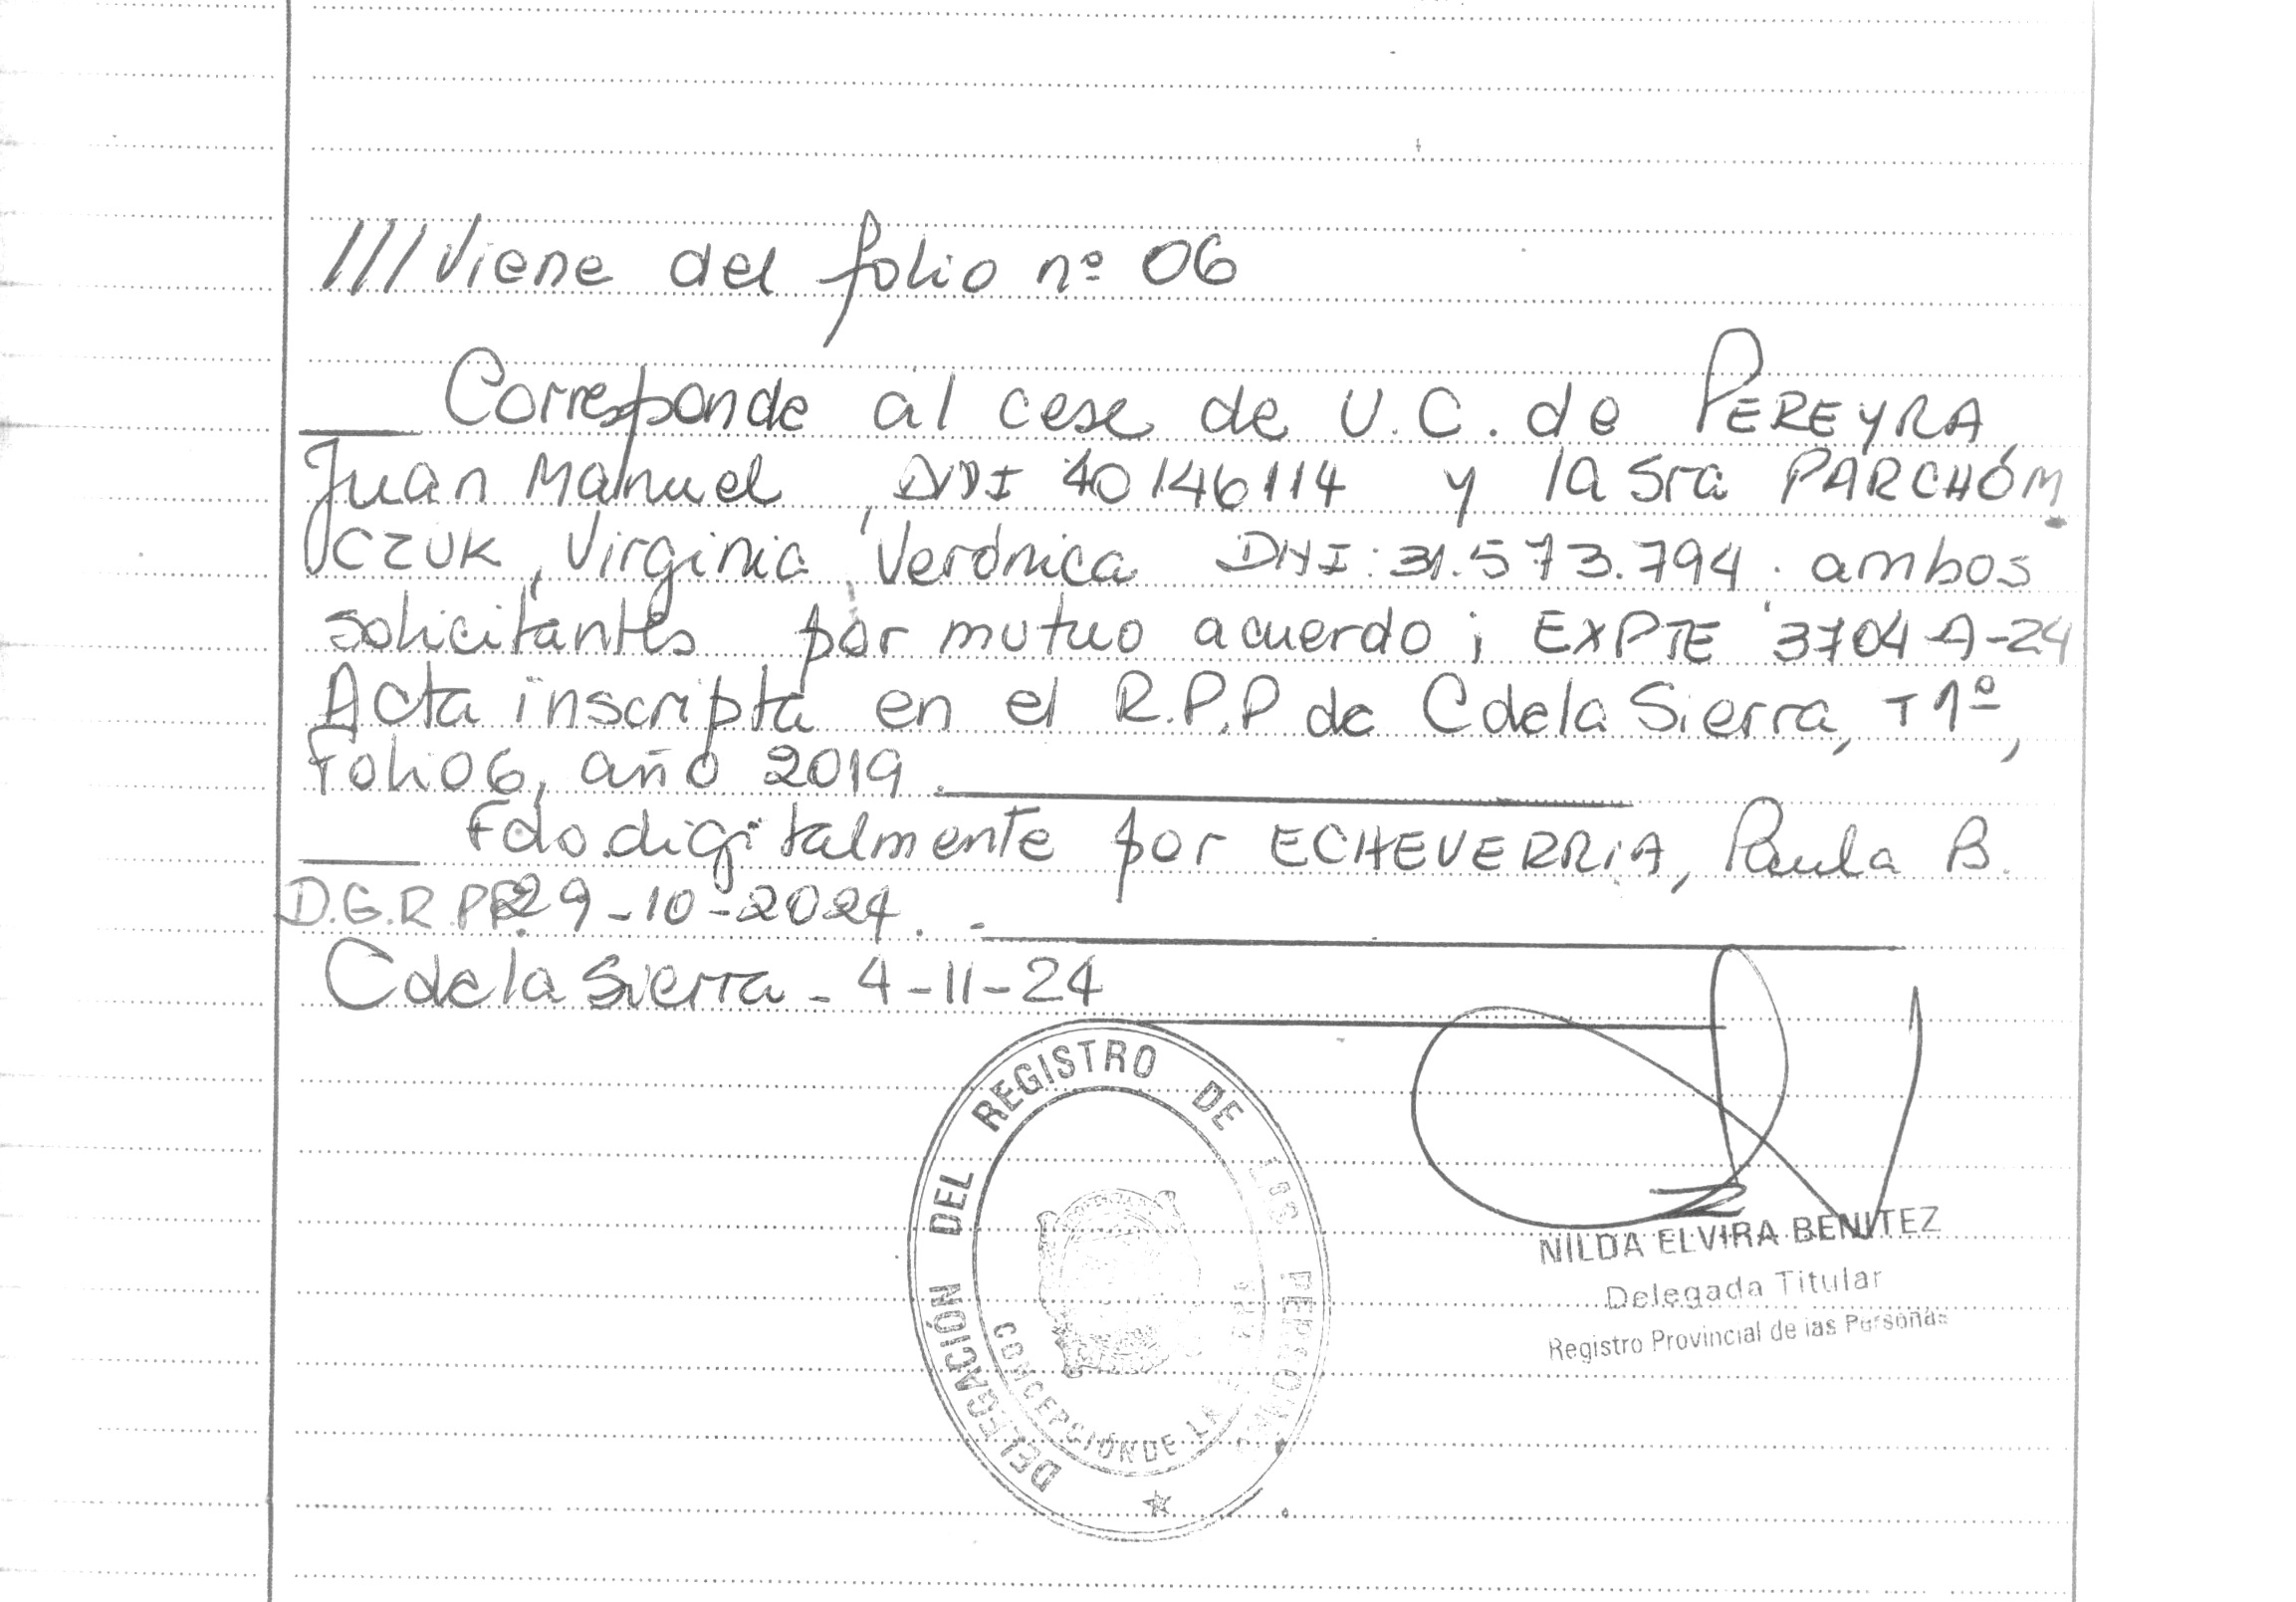 ///Viene del folio nº 06
Corresponde al cese de U.C. de PEREYRA,
Juan Manuel, DNI 40146114 y la Sra PARCHOM
CZUK, Virginia Verónica DNI: 31.573.794. ambos
solicitantes por mutuo acuerdo; EXPTE 3704-A-24
Acta inscripta en el R.P.P de C de la Sierra, T 1º,
Folio 6, año 2019.
Fdo. digitalmente por ECHEVERRIA, Paula B.
D.G.R.PP. 29-10-2024.
C de la Sierra - 4-11-24
DELEGACIÓN DEL REGISTRO DE LAS PERSONAS
CONCEPCIÓN DE LA
NILDA ELVIRA BENITEZ
Delegada Titular
Registro Provincial de las Personas